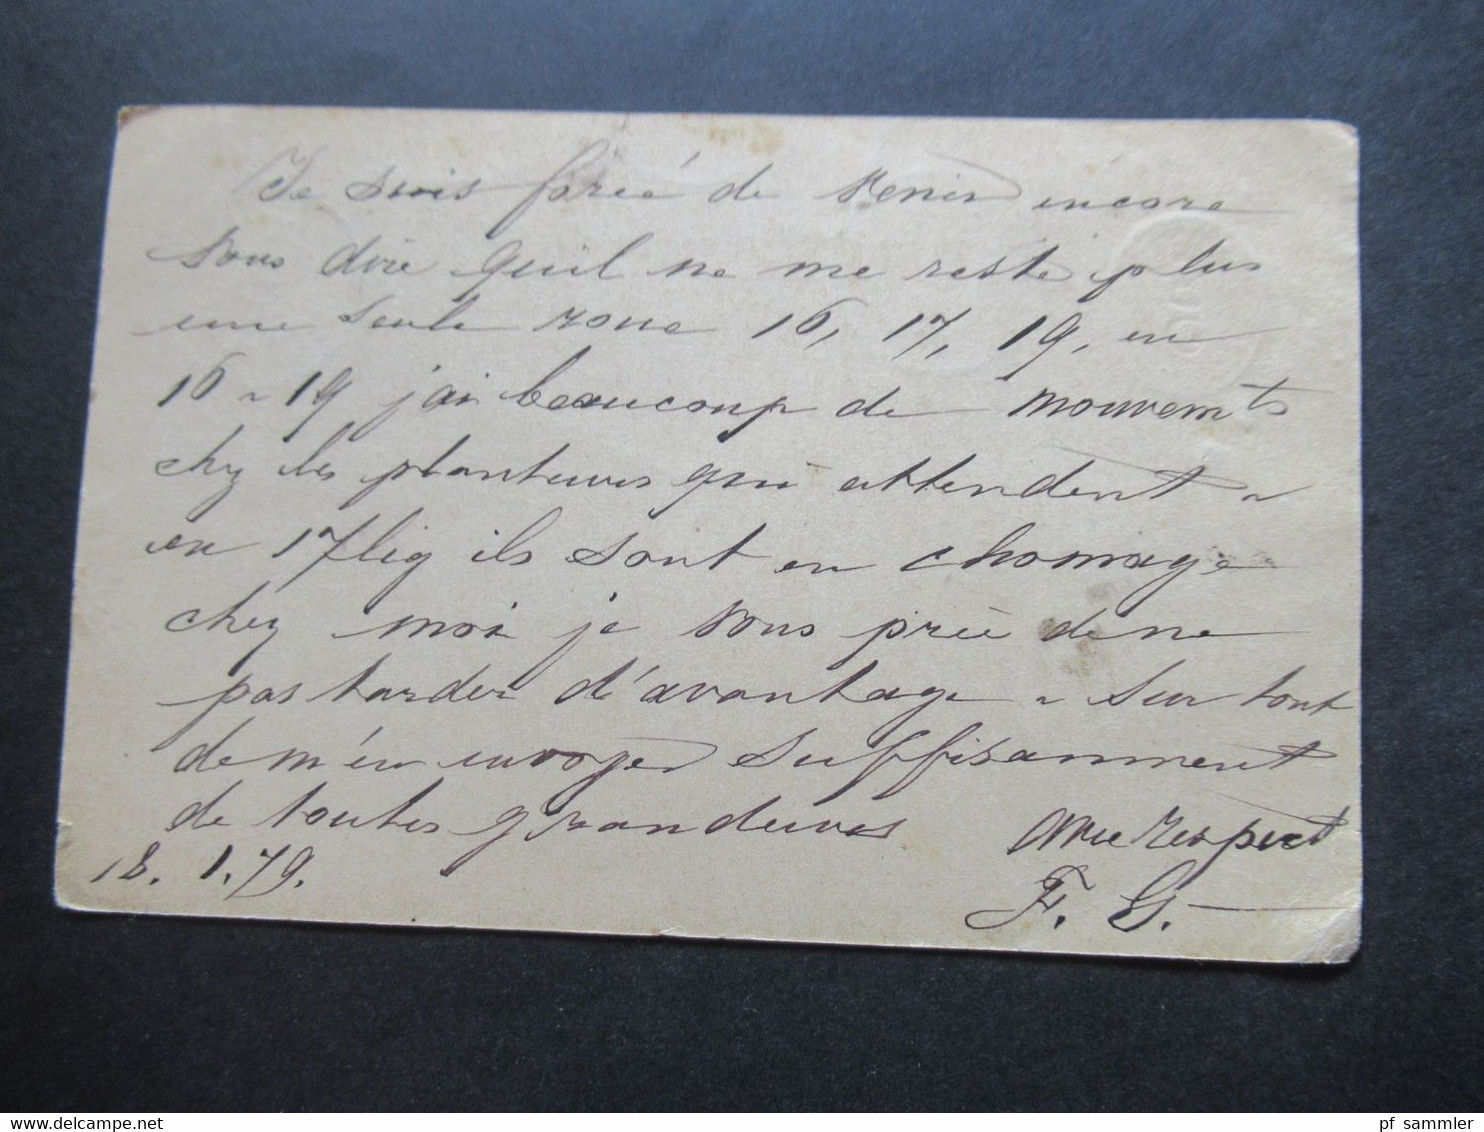 Je suis forcé de venir encore
vous dire quil ne me reste plus
une seule roue 16, 17, 19, en
16 & 19 j'ai beaucoup de mouvemts
chez les planteurs qui attendent &
en 17 lig ils sont en chomage
chez moi je vous prie de ne
pas tarder d'avantage & sur tout
de m'en envoyer suffisamment
de toutes grandeures avec respect
18. 1. 79. F. G.
www.delcampe.net
pf_sammler